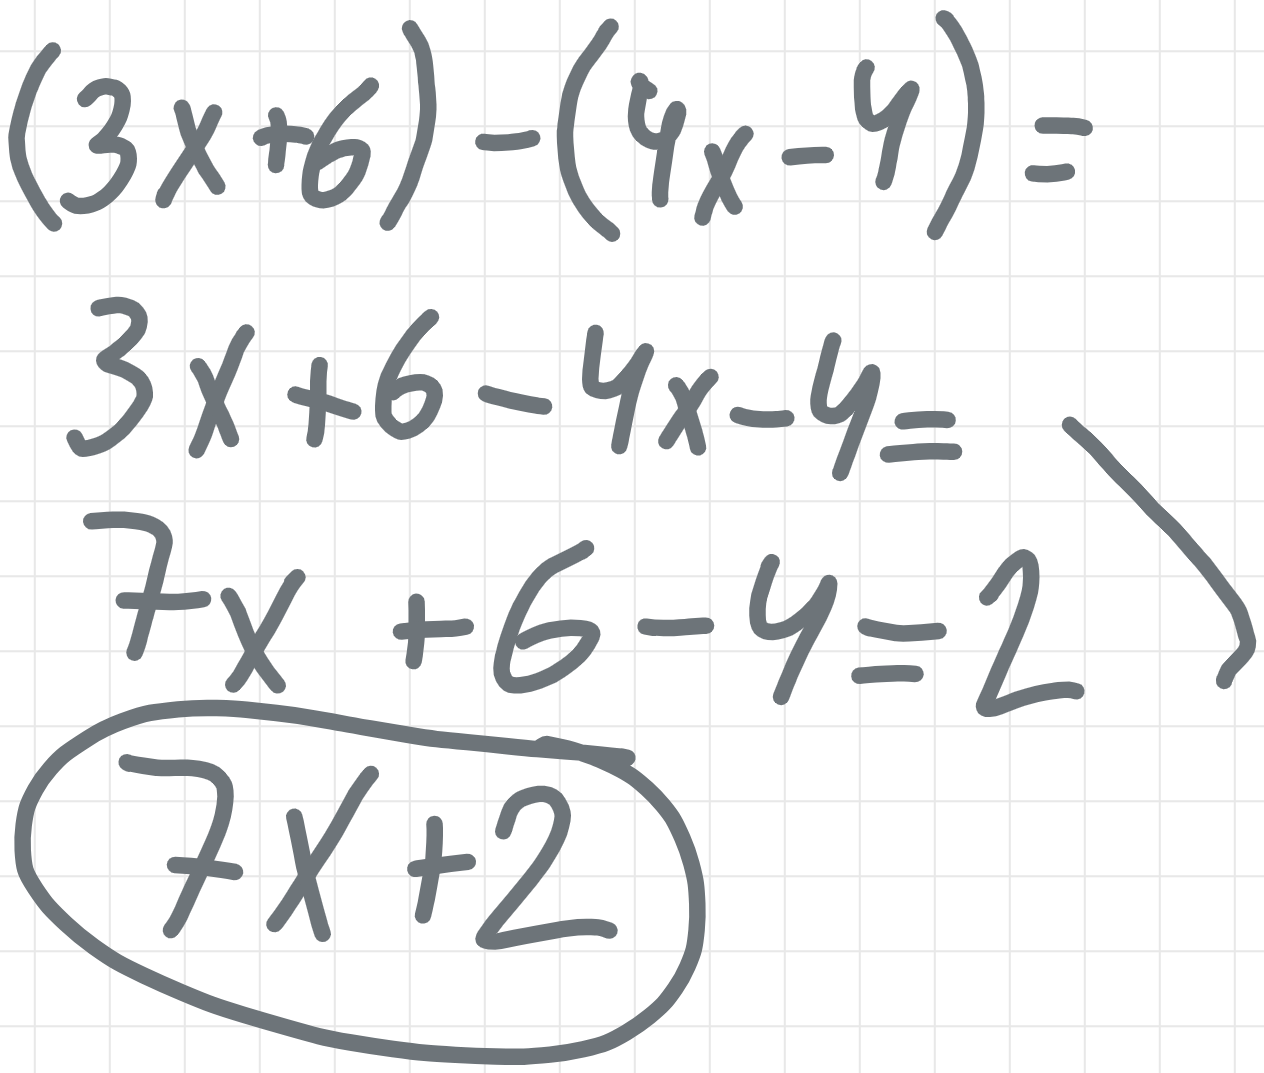 (3x+6)-(4x-4)=
3x+6-4x-4=
7x +6-4=2
7x+2